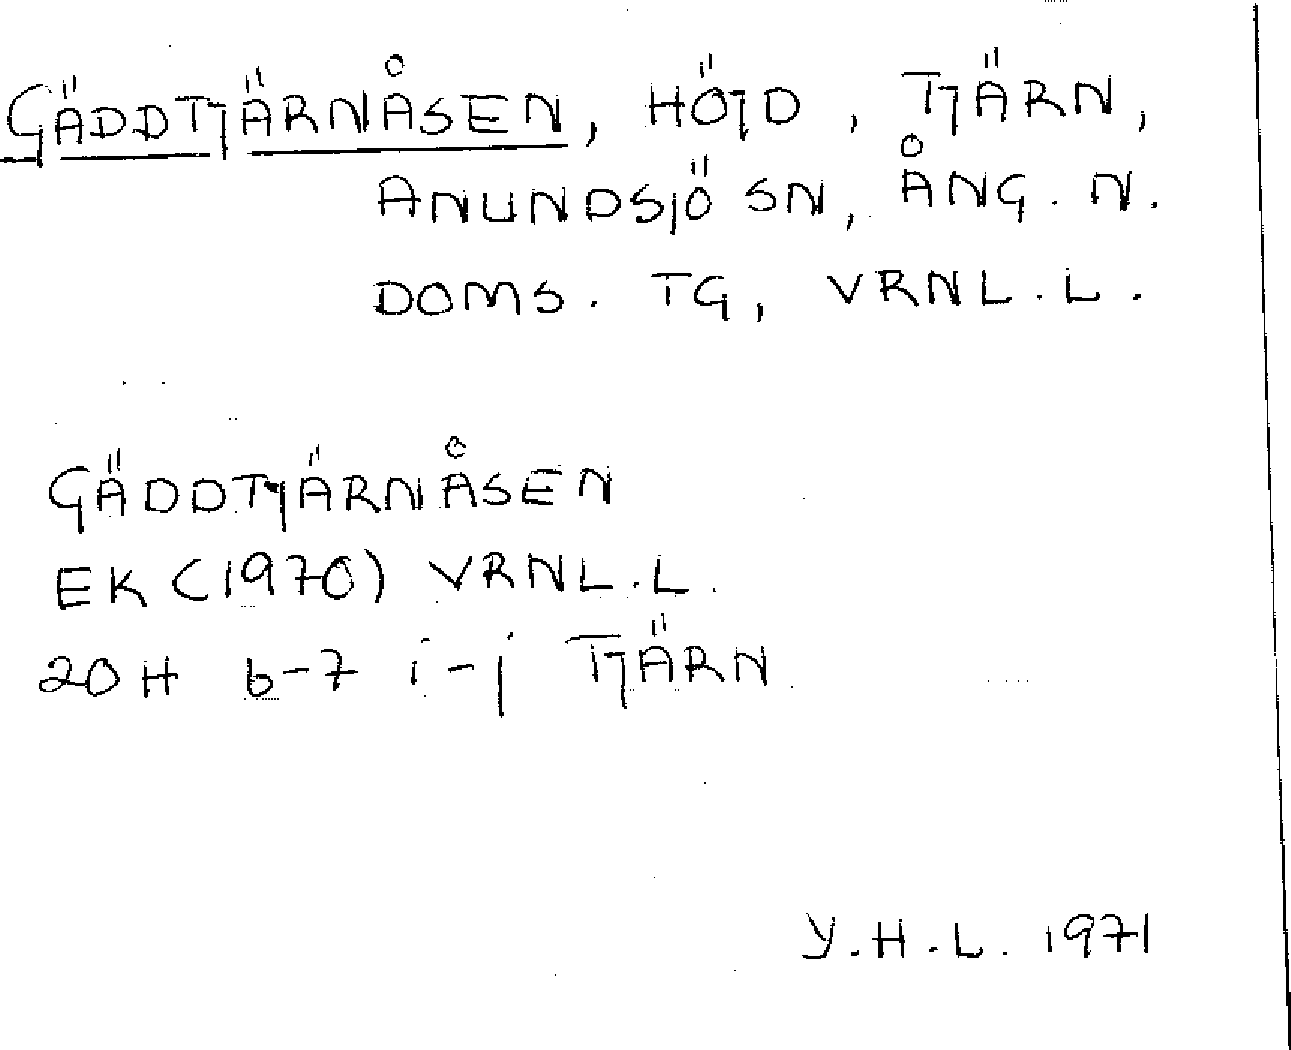 GÄDDTJÄRNÅSEN, HÖJD, TJÄRN,
ANUNDSJÖ SN, ÅNG. N.
DOMS. TG, VRNL. L.
GÄDDTJÄRNÅSEN
EK (1970) VRNL. L.
20H 6-7 i-j TJÄRN
Y.H.L. 1971